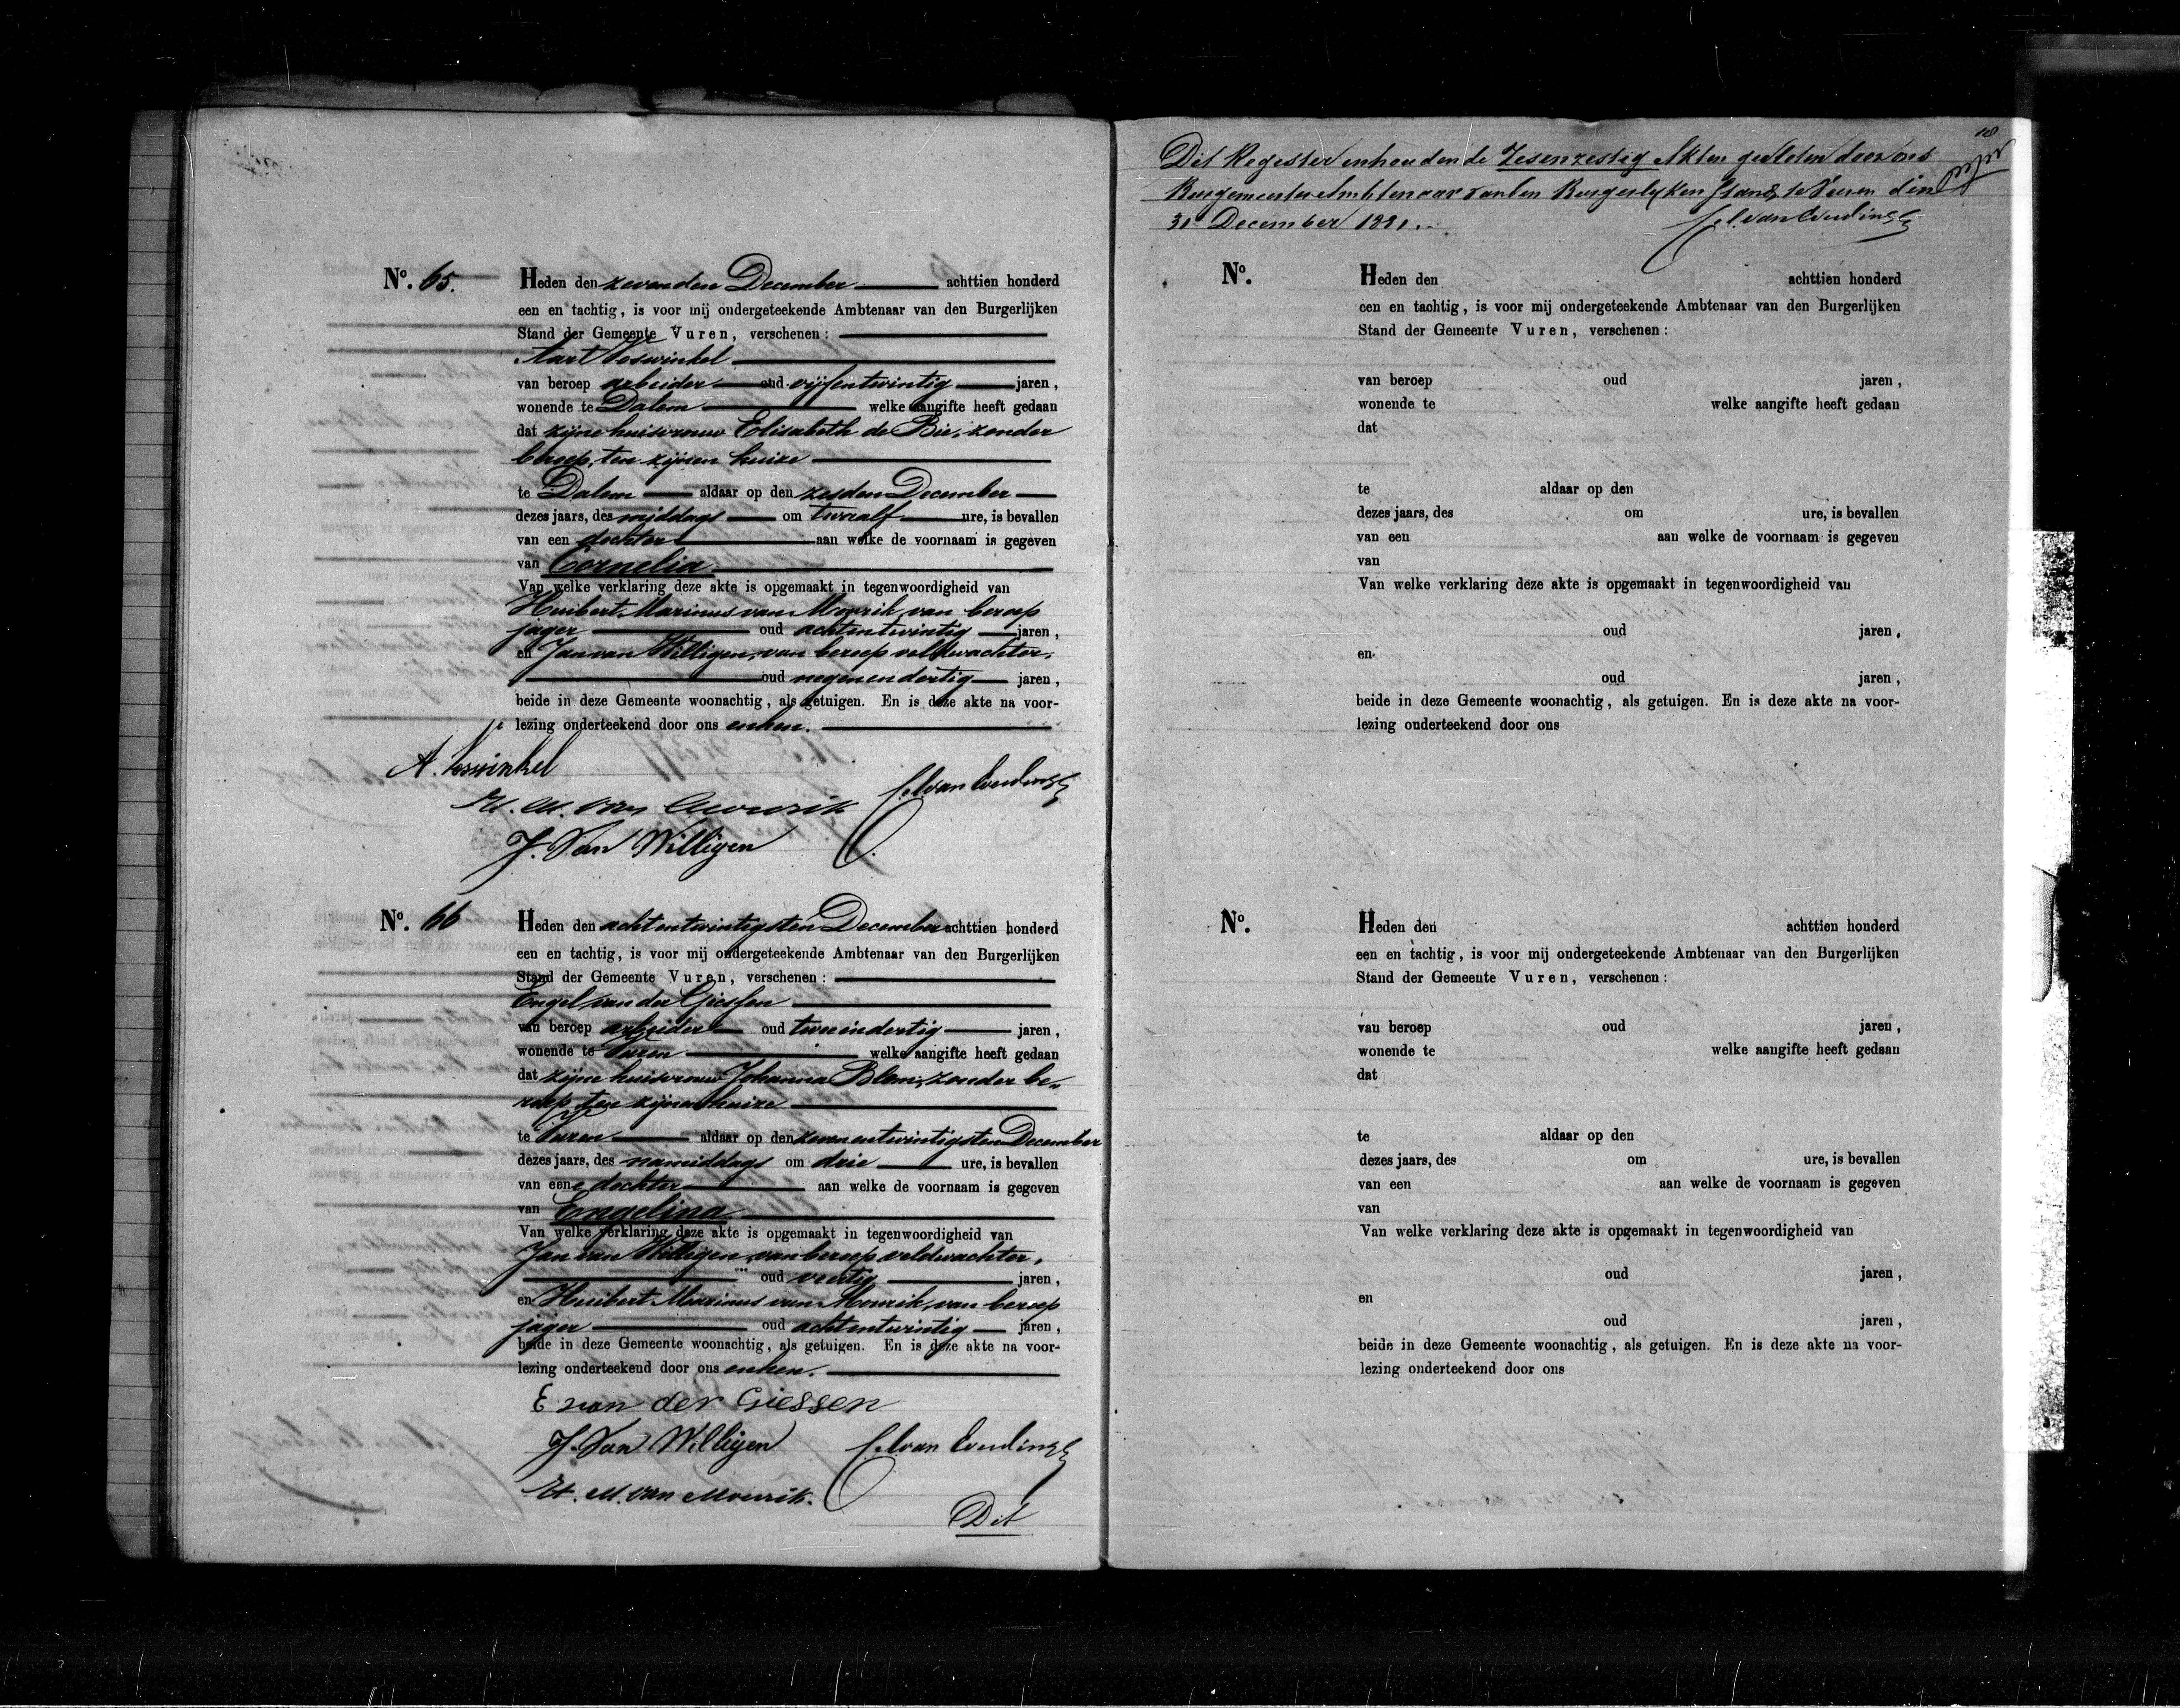 No. 65. Heden den zevenden December achttien honderd
een en tachtig, is voor mij ondergeteekende Ambtenaar van den Burgerlijken
Stand der Gemeente Vuren, verschenen:
Aart Voswinkel
van beroep arbeider oud vijfentwintig jaren,
wonende te Dalem welke aangifte heeft gedaan
dat zijne huisvrouw Elisabeth de Bie, zonder
beroep, ten zijnen huize
te Dalem aldaar op den zesden December
dezes jaars, des middags om twaalf ure, is bevallen
van een dochter aan welke de voornaam is gegeven
van Cornelia
Van welke verklaring deze akte is opgemaakt in tegenwoordigheid van
Huibert Marinus van Mourik, van beroep
jager oud achtentwintig jaren,
en Jan van Willigen, van beroep veldwachter,
oud negenendertig jaren,
beide in deze Gemeente woonachtig, als getuigen. En is deze akte na voor-
lezing onderteekend door ons en hen.
A. Voswinkel
H. M. van Mourik
J. Van Willigen
No. 66 Heden den achtentwintigsten December achttien honderd
een en tachtig, is voor mij ondergeteekende Ambtenaar van den Burgerlijken
Stand der Gemeente Vuren, verschenen:
Engel van der Giessen
van beroep arbeider oud tweeendertig jaren,
wonende te Vuren welke aangifte heeft gedaan
dat zijne huisvrouw Johanna Blom, zonder be-
roep ten zijnen huize
te Vuren aldaar op den zevenentwintigsten December
dezes jaars, des namiddags om drie ure, is bevallen
van eene dochter aan welke de voornaam is gegeven
van Engelina
Van welke verklaring deze akte is opgemaakt in tegenwoordigheid van
Jan van Willigen, van beroep veldwachter,
oud veertig jaren,
en Huibert Marinus van Mourik, van beroep
jager oud achtentwintig jaren,
beide in deze Gemeente woonachtig, als getuigen. En is deze akte na voor-
lezing onderteekend door ons en hen.
E van der Giessen
J. Van Willigen
H. M. van Mourik.
Dit
18
Dit Register inhoudende Zesenzestig Akten gesloten door ons
Burgemeester Ambtenaar van den Burgerlyken Stand te Vuren den
31 December 1881.
No. Heden den achttien honderd
een en tachtig, is voor mij ondergeteekende Ambtenaar van den Burgerlijken
Stand der Gemeente Vuren, verschenen:
van beroep oud jaren,
wonende te welke aangifte heeft gedaan
dat
te aldaar op den
dezes jaars, des om ure, is bevallen
van een aan welke de voornaam is gegeven
van
Van welke verklaring deze akte is opgemaakt in tegenwoordigheid van
oud jaren,
en
oud jaren,
beide in deze Gemeente woonachtig, als getuigen. En is deze akte na voor-
lezing onderteekend door ons
No. Heden den achttien honderd
een en tachtig, is voor mij ondergeteekende Ambtenaar van den Burgerlijken
Stand der Gemeente Vuren, verschenen:
van beroep oud jaren,
wonende te welke aangifte heeft gedaan
dat
te aldaar op den
dezes jaars, des om ure, is bevallen
van een aan welke de voornaam is gegeven
van
Van welke verklaring deze akte is opgemaakt in tegenwoordigheid van
oud jaren,
en
oud jaren,
beide in deze Gemeente woonachtig, als getuigen. En is deze akte na voor-
lezing onderteekend door ons